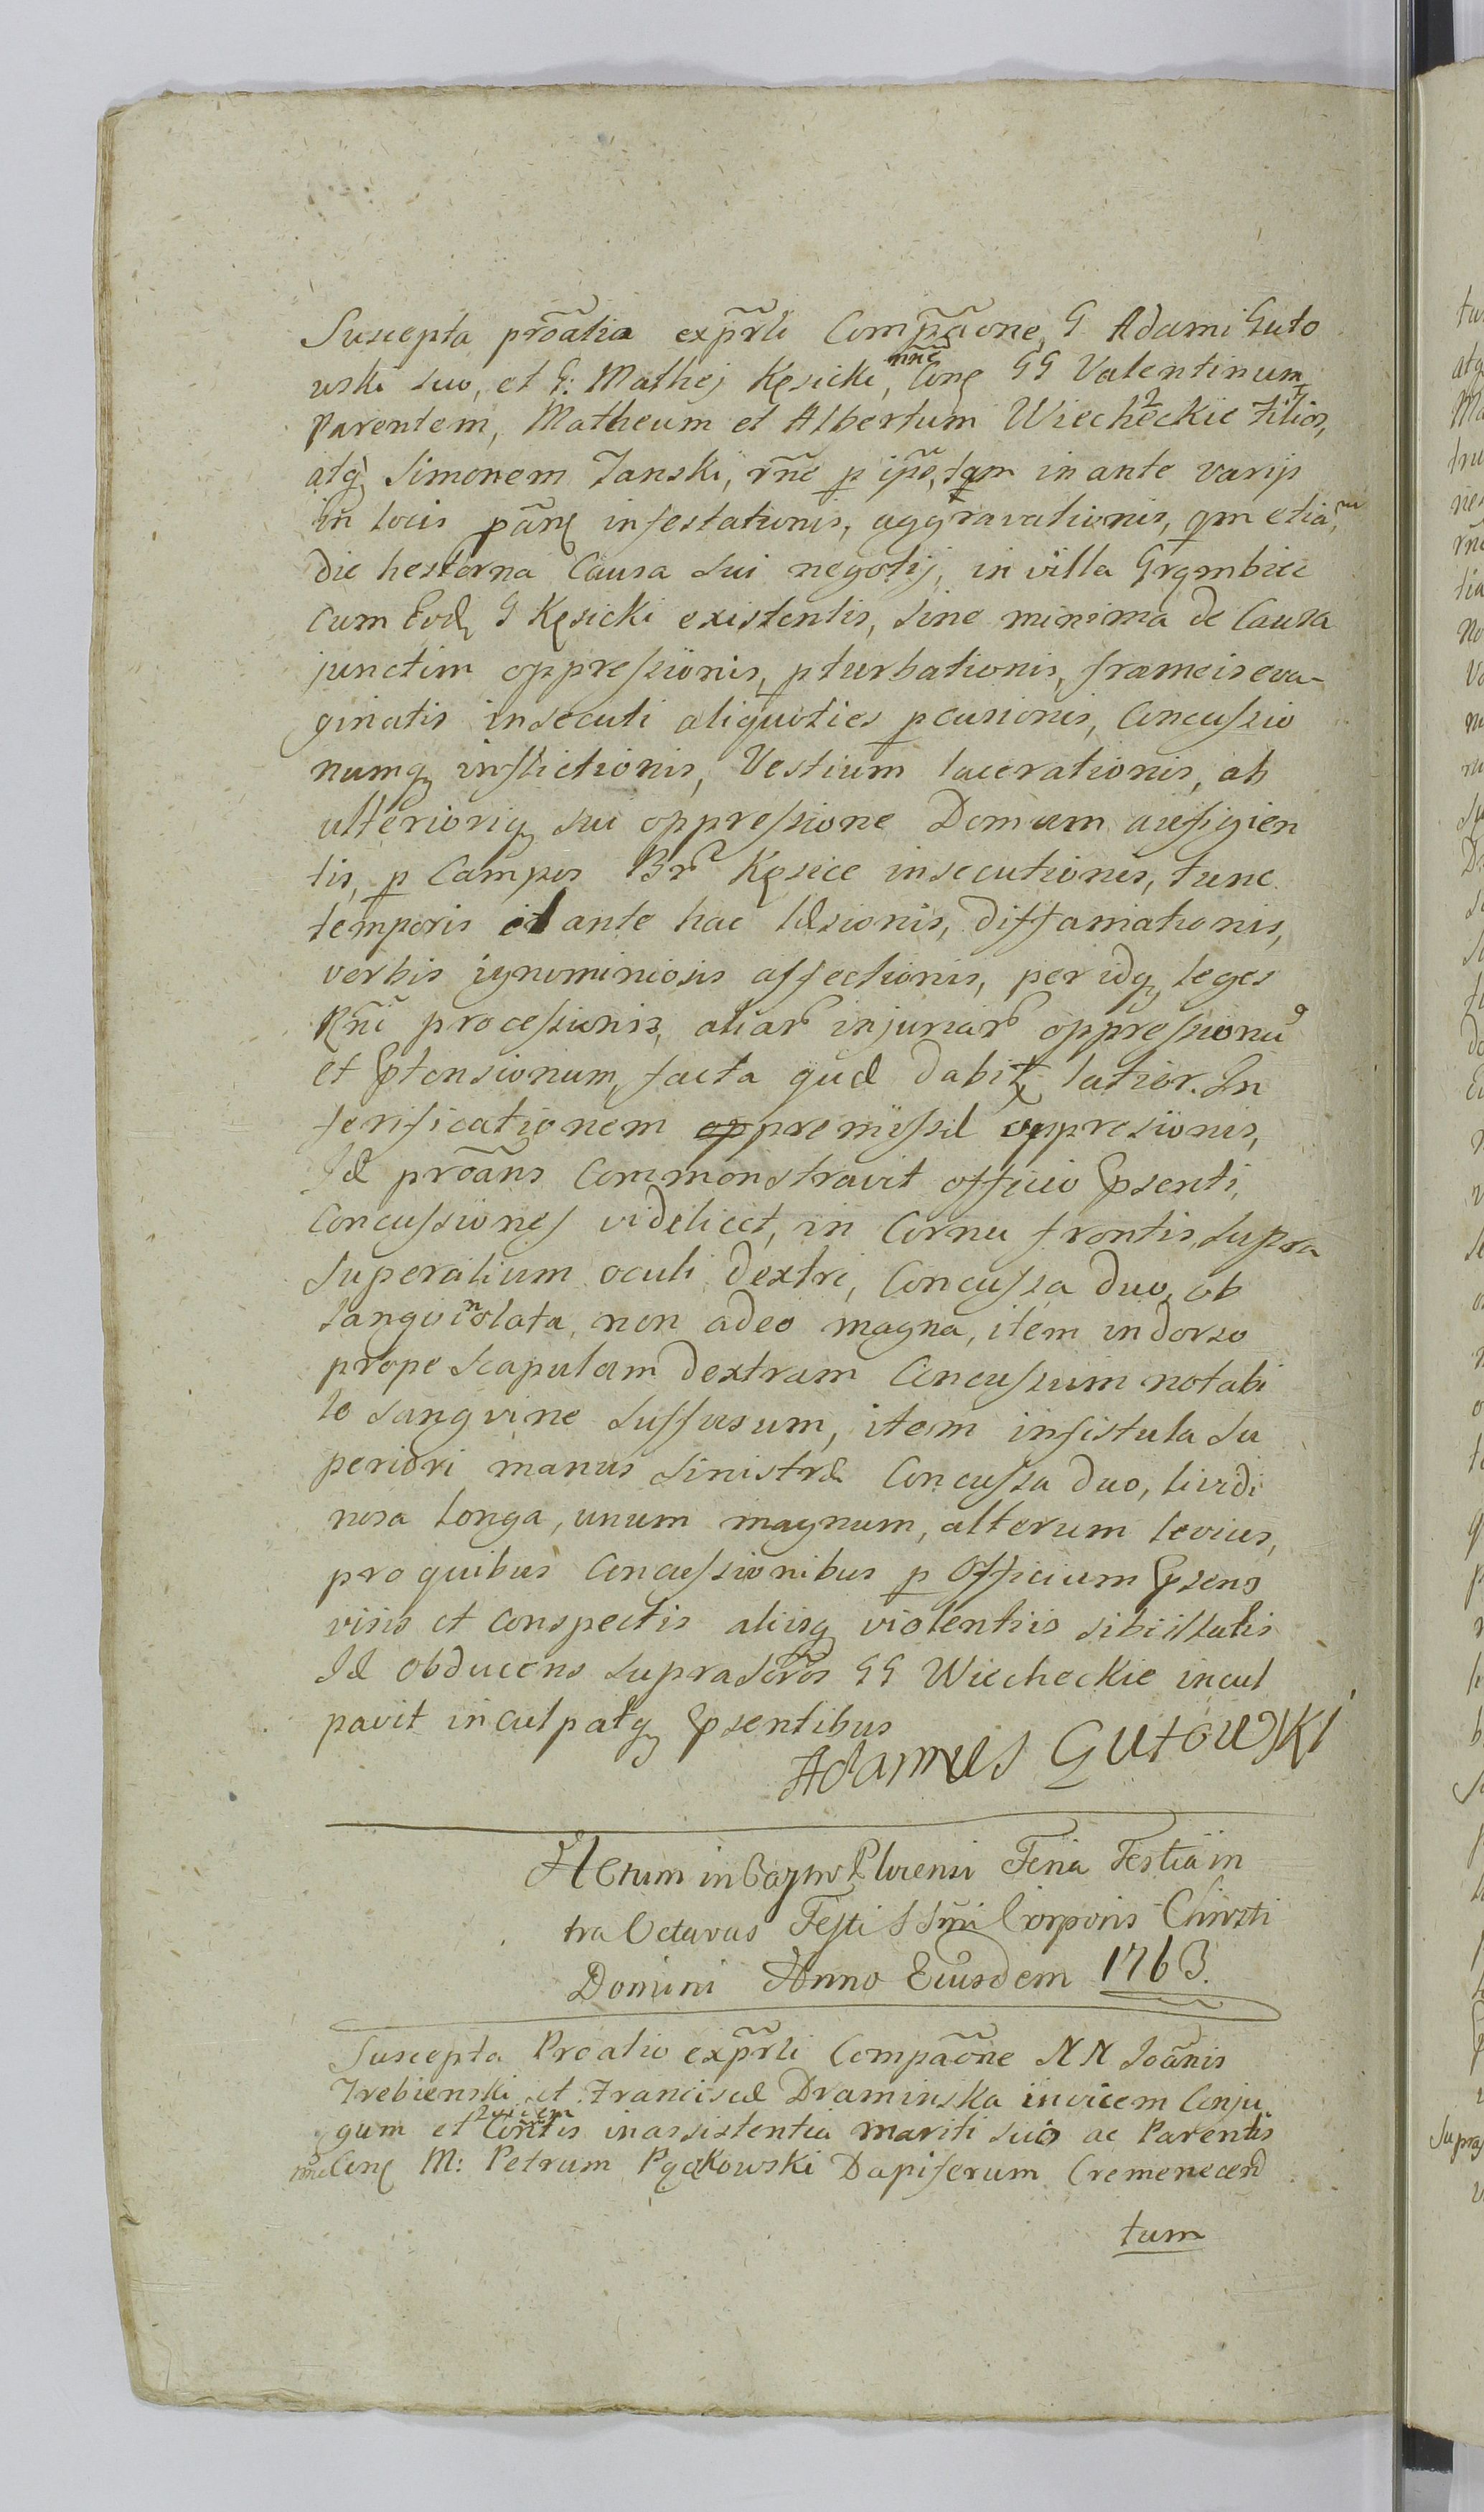 Suscepta prõatia exp̃rli Comp̃aone, G Adami Guto
wski suo, et G: Mathej Kęsicki, nñe Conę GG Valentinum
Parentem, Matheum et Albertum Wiecheckie Filios,
atq; Simonem Janski, rñe p ipẽ, tąm in ante varijs
in locis pãnę infestationis, aggravationis, qm etiam
die hesterna Causa sui negotij, in villa Grąmbiec
cum Eod, G Kęsicki existentis, sine minima de Causa
junctim oppressionis, pturbationis, frameis eva-
ginatis insecuti aliquoties pcusionis, Concussio
numq; inflictionis, Vestium lacerationis, ab
ulterioriq; sui oppressione Domum aufigien
tis, p Campos Br̃ Kęsice insecutionis, tunc
temporis et ante hac læsionis, diffamationis,
verbis ignominiosis affectionis, per idq; leges
Rñi processionis, aliar injuriar oppressionu
et Ptensionum, facta quæ dabit latior. In
ferificationem premissæ oppresionis,
Id prõans Commonstravit officio Psenti,
Concussiones videlicet, in Cornu frontis, supra
Superalium oculi dextri, Concussa duo, ob
sanguinolata, non adeo magna, item in dorso
prope scapulam dextram Concussum notabi
le sangvine suffusum, item in fistula su
periori manus sinistræ Concussa duo, lividi
nosa longa, unum magnum, alterum levius,
pro quibus Concussionibus p Officium Psens
visis et conspectis aliisq; violentiis sibi illatis
Id obducens supraScr̃os GG Wiecheckie incul
pavit inculpatq; Psentibus
Adamus Gutowski
Actum in Castro Plocensi Feria Tertia in
tra Octavas Festi SSm̃i Corporis Christi
Domini Anno Eiusdem 1763.
Suscepta Proalio exp̃rli Compãone NN Joãnis
Trebienski et Franciscæ Draminska invicem Conju
gum et 2 vicem Contis in assistentia mariti sui ac Parentis
nñe Conę M: Petrum Pąkowski Dapiferum Cremenecen
tum